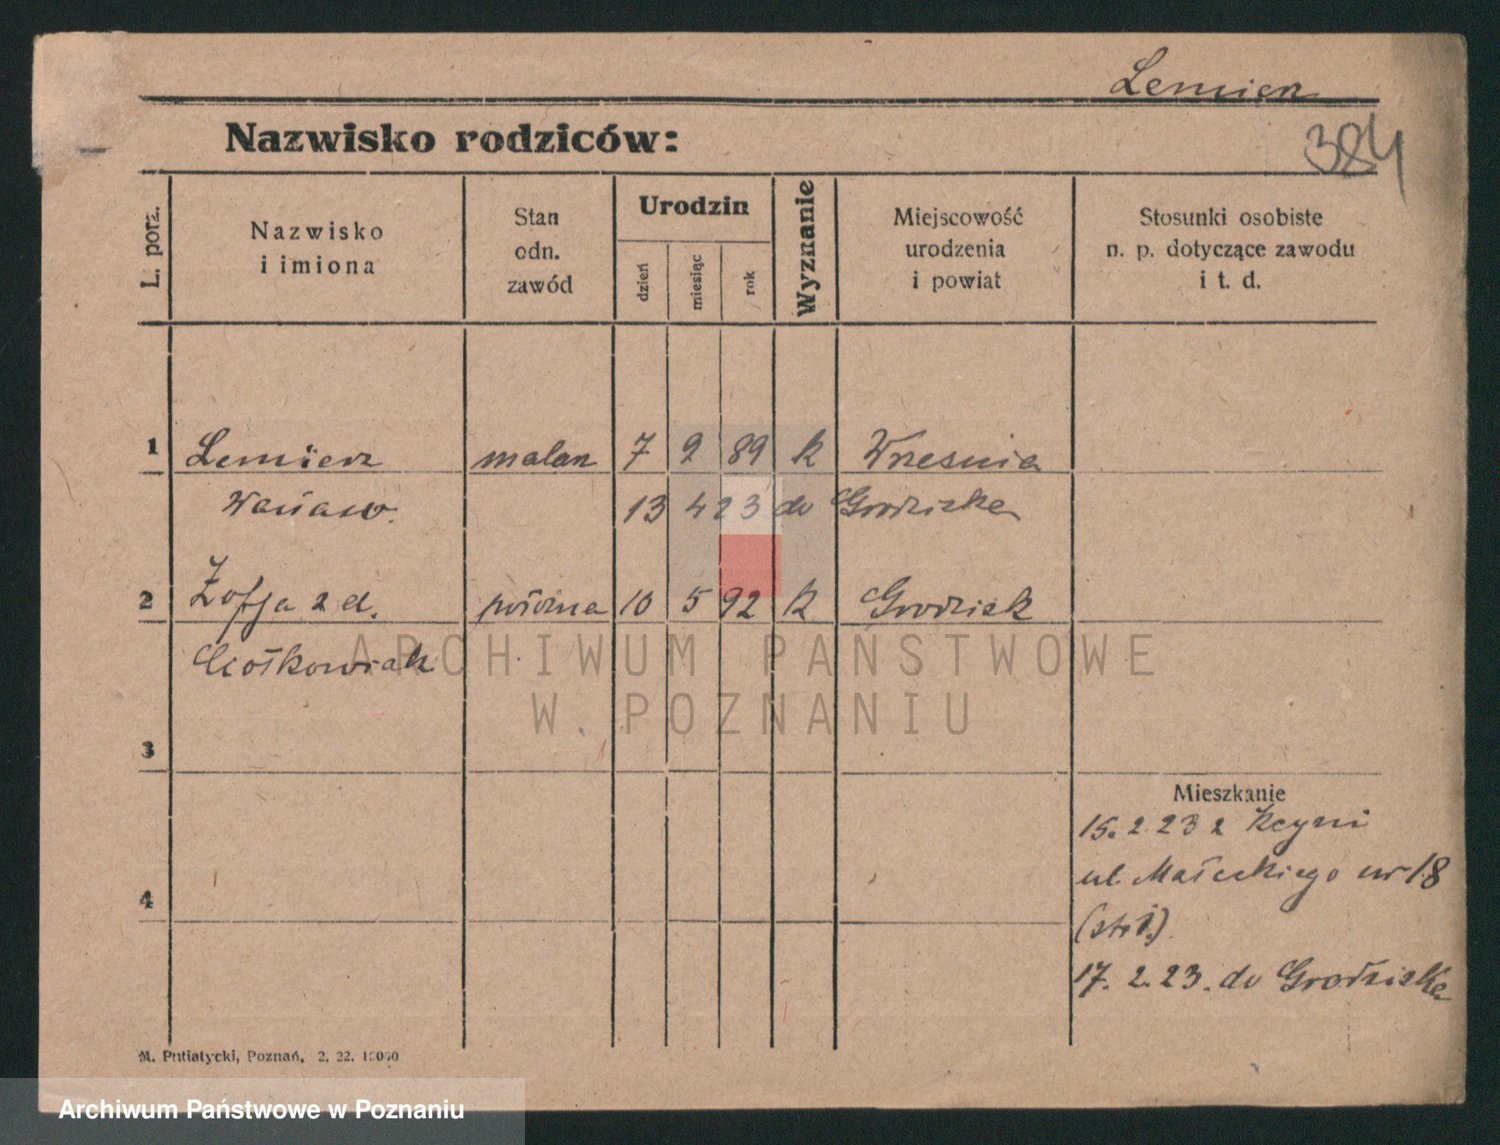 Lemierz
Nazwisko rodziców:
384
L. porz.
Nazwisko
i imiona
Stan
odn.
zawód
Urodzin
dzień
miesiąc
rok
Wyznanie
Miejscowość
urodzenia
i powiat
Stosunki osobiste
n. p. dotyczące zawodu
i t. d.
1 Lemierz malarz 7 9 89 k Wrzesnia
13 4 23 do Grodziska
2 Zofja z d. 10 5 92 k Grodzisk
Ciołkowiak
3
Mieszkanie
15. 2. 23 z Kcyni
ul. Małeckiego nr 18
4
17. 2. 23. do Grodziska
M. Putiatycki, Poznań, 2. 22.
ARCHIWUM PAŃSTWOWE
W POZNANIU
Archiwum Państwowe w Poznaniu